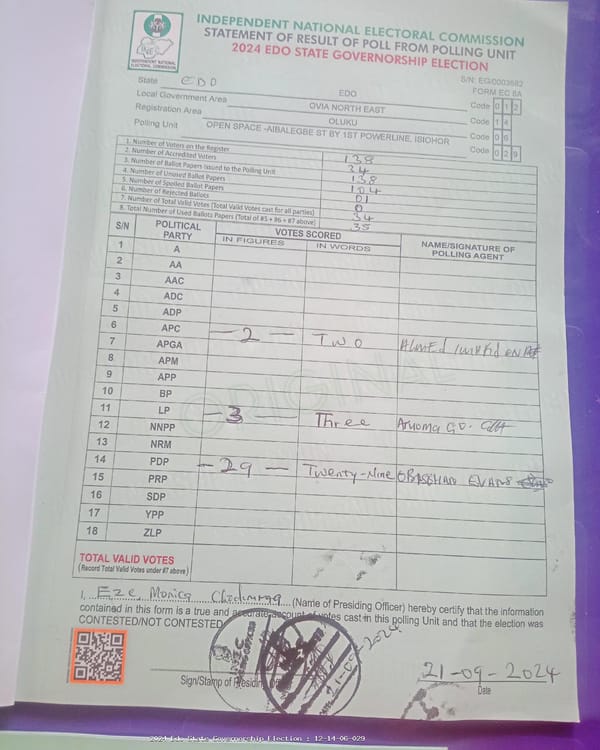 INDEPENDENT NATIONAL ELECTORAL COMMISSION
STATEMENT OF RESULT OF POLL FROM POLLING UNIT
2024 EDO STATE GOVERNORSHIP ELECTION
INDEPENDENT NATIONAL ELECTORAL COMMISSION
S/N: EG/0003682
FORM EC 8A
State EDO EDO
Local Government Area OVIA NORTH EAST Code 0 1 2
Registration Area OLUKU Code 1 4
Polling Unit OPEN SPACE -AIBALEGBE ST BY 1ST POWERLINE, ISIOHOR Code 0 6
Code 0 2 9
1. Number of Voters on the Register 138
2. Number of Accredited Voters 34
3. Number of Ballot Papers Issued to the Polling Unit 138
4. Number of Unused Ballot Papers 104
5. Number of Spoiled Ballot Papers 01
6. Number of Rejected Ballots 0
7. Number of Total Valid Votes (Total Valid Votes cast for all parties) 34
8. Total Number of Used Ballots Papers (Total of #5 + #6 + #7 above) 35
S/N POLITICAL PARTY VOTES SCORED NAME/SIGNATURE OF POLLING AGENT
IN FIGURES IN WORDS
1 A
2 AA
3 AAC
4 ADC
5 ADP
6 APC - 2 - Two Ahmed
7 APGA
8 APM
9 APP
10 BP
11 LP - 3 - Three Aruoma
12 NNPP
13 NRM
14 PDP - 29 - Twenty-Nine EVANS
15 PRP
16 SDP
17 YPP
18 ZLP
ORIGINAL
TOTAL VALID VOTES
(Record Total Valid Votes under #7 above)
I, Eze, Monica (Name of Presiding Officer) hereby certify that the information
contained in this form is a true and accurate account of votes cast in this polling Unit and that the election was
CONTESTED/NOT CONTESTED
21-09-2024
21-09-2024
Sign/Stamp of Presiding
Date
2024 Edo State Governorship Election : 12-14-06-029